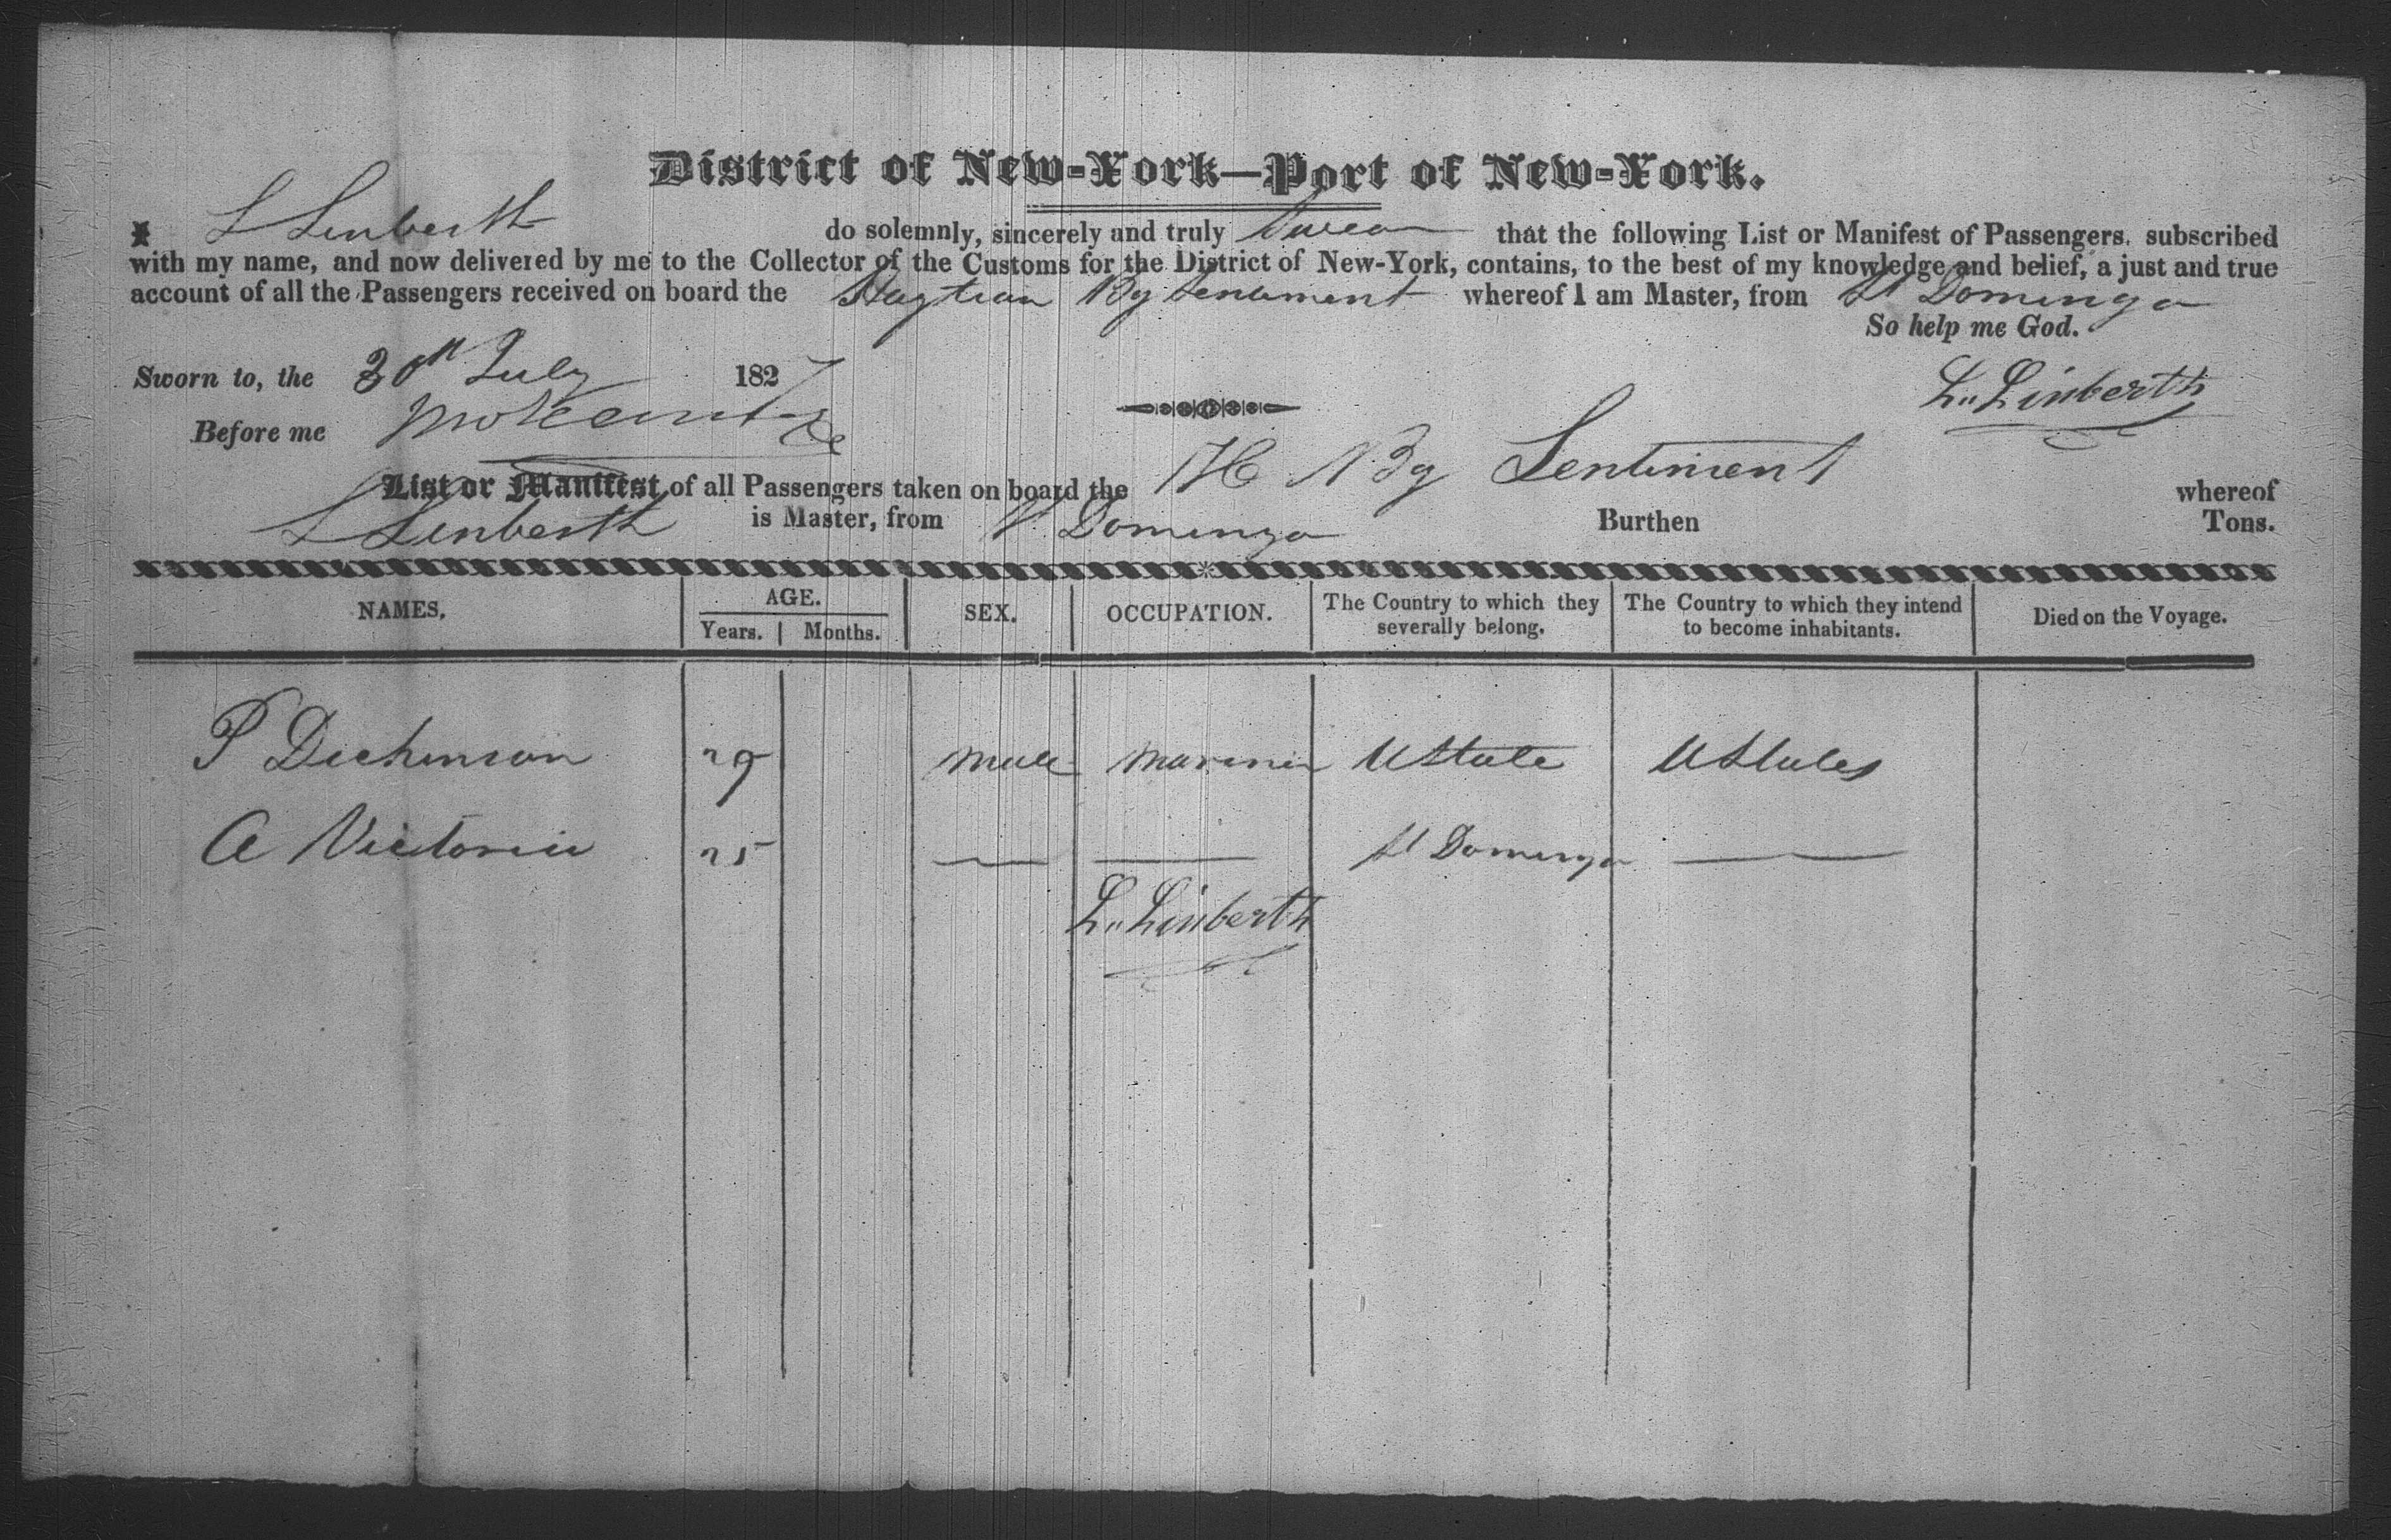 District of New-York—Port of New-York.
I L Linberth do solemnly, sincerely and truly Swear that the following List or Manifest of Passengers, subscribed
with my name, and now delivered by me to the Collector of the Customs for the District of New-York, contains, to the best of my knowledge and belief, a just and true
account of all the Passengers received on board the Haytian Bg Sentiment whereof I am Master, from St Domingo
So help me God.
Sworn to, the 30th July 1827 L. Linberth
Before me
List or Manifest of all Passengers taken on board the Bg Sentiment whereof
L Linberth is Master, from St Domingo Burthen Tons.
NAMES. AGE. Years. Months. SEX. OCCUPATION. The Country to which they severally belong. The Country to which they intend to become inhabitants. Died on the Voyage.
P Dickinson 29 male mariner U State U States
A Victorin 25 — — St Domingo —
L. Linberth